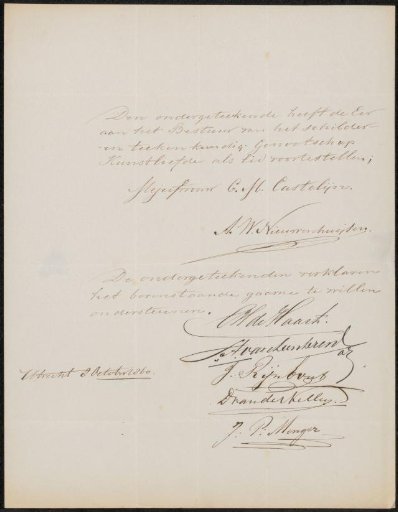 Den ondergeteekende heeft de Eer
aan het Bestuur van het schilder-
en teekenkundig Genootschap
Kunstliefde als lid voortestellen;
Mejufvrouw C. M. Castelijn.
A. W. Nieuwenhuyzen
De ondergeteekenden verklaren
het bovenstaande gaarne te willen
ondersteunen.
C H de Haart.
Utrecht 8 October 1860.
J. Rijnbergh
D van der Kellen
J. P. Menger